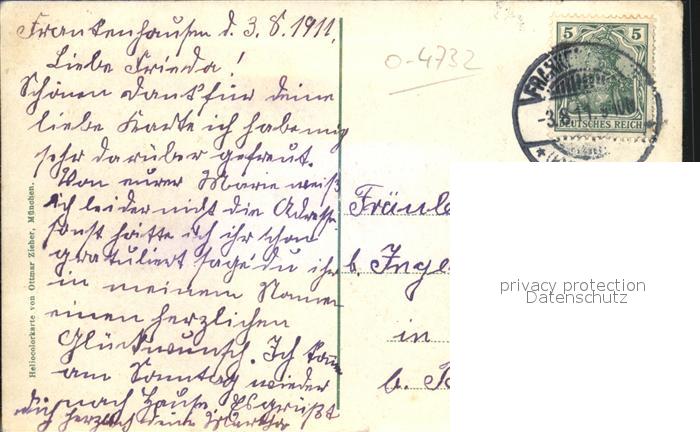 Frankenhausen d. 3.8.1911.
Liebe Frieda!
Schönen Dank für deine
liebe Karte ich habe mig
sehr darüber gefreut.
Von eurer Marie weiß
ich leider nicht die Adresse
sonst hätte ich ihr schon
gratuliert sage du ihr
in meinem Namen
einen herzlichen
Glückwunsch. Ich komme
am Sonntag wieder
nach Hause. Es grüßt
dich herzlich deine Martha
Heliocolorkarte von Ottmar Zieher, München.
o-4732
5 5
DEUTSCHES REICH
FRANK
-3.8.11.
Fräul
b. Ingl
in
b.
privacy protection
Datenschutz